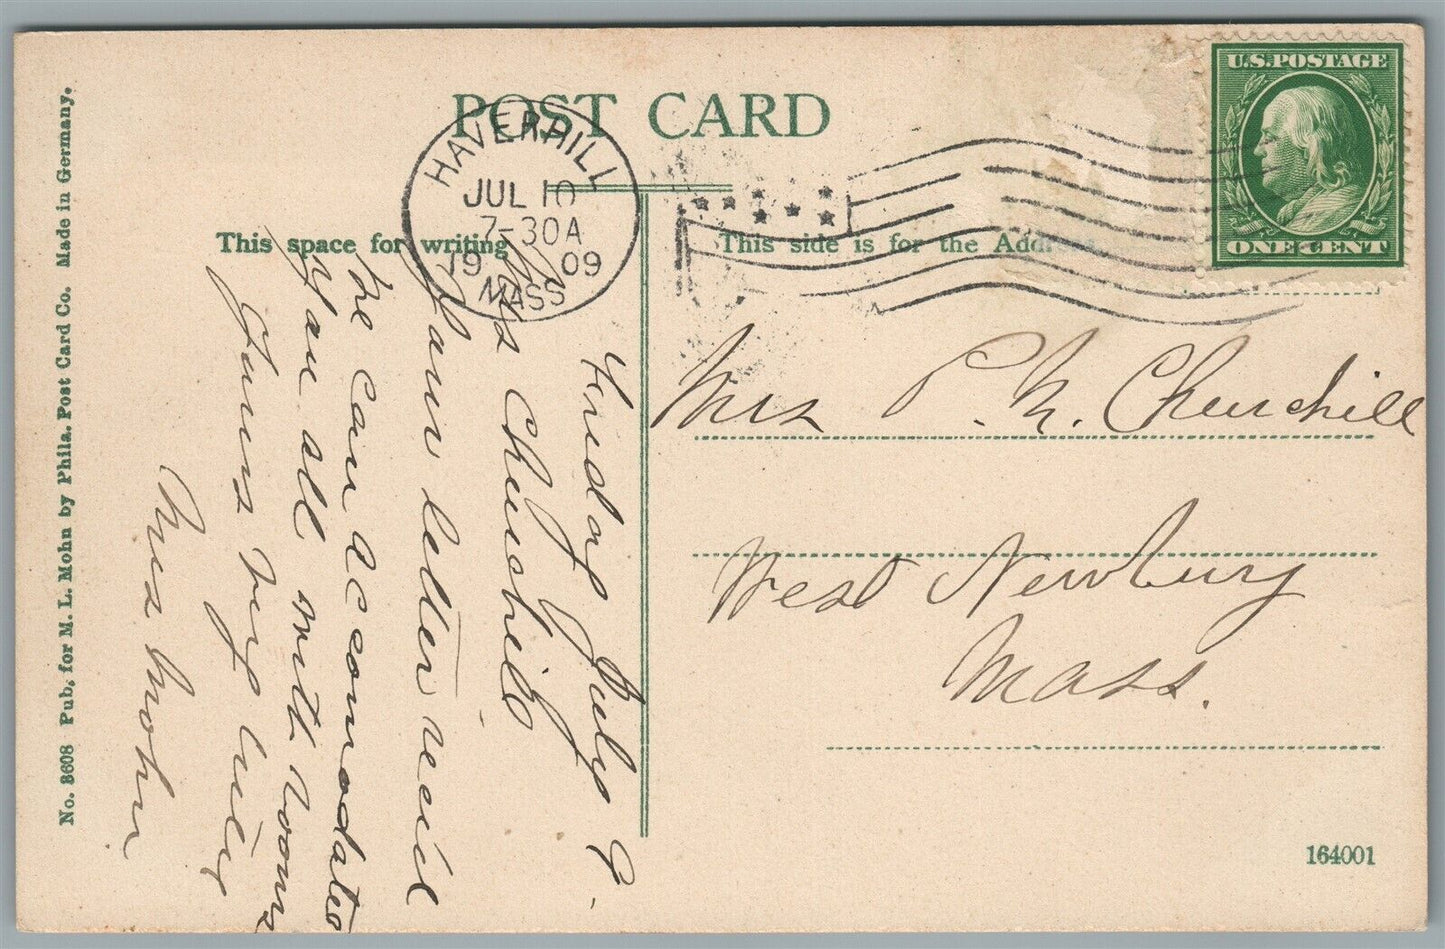 POST CARD
HAVERHILL
JUL 10
7-30A
19 09
MASS
U.S. POSTAGE
ONE CENT
This space for writing
This side is for the Address
Friday July 9.
Mrs Churchill
Your letter recid
We can accomodate
you all with rooms
Yours very truly
Mrs Mohn
Mrs P. N. Churchill
West Newbury
Mass.
No. 3608 Pub. for M. L. Mohn by Phila. Post Card Co. Made in Germany.
164001